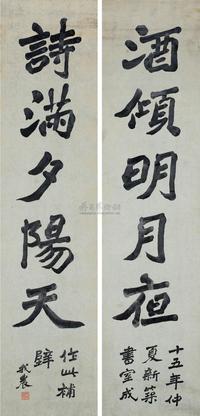 酒傾明月夜
十五年仲
夏新築
書室成
詩滿夕陽天
作此補
壁